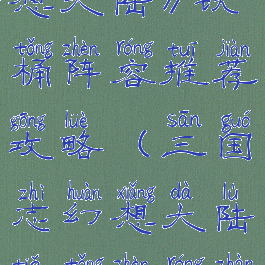 想大陆//铁
tǒng zhèn róng tuī jiàn
桶阵容推荐
gōng lüè sān guó
攻略（三国
zhì huàn xiǎng dà lù
志幻想大陆
tiě tǒng zhèn róng zhèn